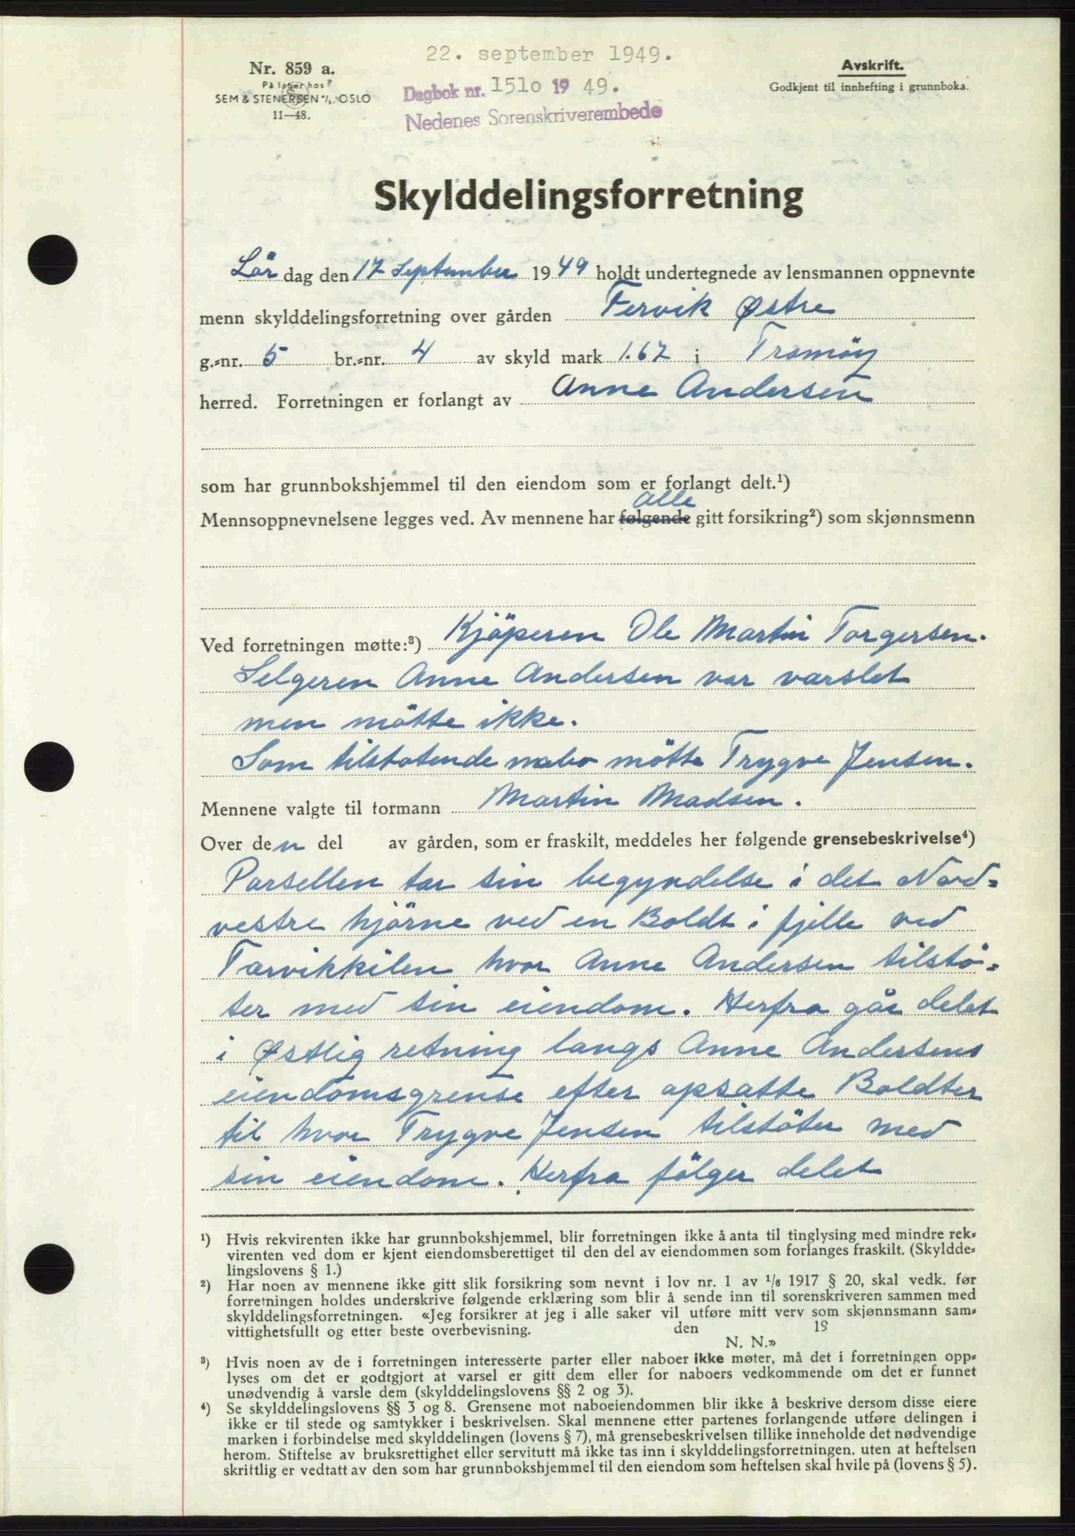 22. september 1949.
Nr. 859 a.
På lager hos
SEM & STENERSEN A/S, OSLO
11—48.
Dagbok nr. 1510 19 49.
Nedenes Sorenskriverembede
Avskrift.
Godkjent til innhefting i grunnboka.
Skylddelingsforretning
Lör dag den 17 September 1949 holdt undertegnede av lensmannen oppnevnte
menn skylddelingsforretning over gården Fervik Østre
g.-nr. 5 br.-nr. 4 av skyld mark 1.67 i Tromöy
herred. Forretningen er forlangt av Anne Andersen
som har grunnbokshjemmel til den eiendom som er forlangt delt.¹)
alle
Mennsoppnevnelsene legges ved. Av mennene har følgende gitt forsikring²) som skjønnsmenn
Ved forretningen møtte:³) Kjöperen Ole Martin Torgersen.
Selgeren Anne Andersen var varslet
men mötte ikke.
Som tilstotende nabo mötte Trygve Jensen.
Mennene valgte til formann Martin Madsen.
Over den del av gården, som er fraskilt, meddeles her følgende grensebeskrivelse⁴)
Parsellen tar sin begyndelse i det Nord-
vestre hjörne ved en Boldt i fjelle ved
Tarvikkilen hvor Anne Andersen tilstö-
ter med sin eiendom. Herfra går delet
i Østlig retning langs Anne Andersens
eiendomsgrense efter opsatte Boldter
til hvor Trygve Jensen tilstöter med
sin eiendom. Herfra fölger delet
¹) Hvis rekvirenten ikke har grunnbokshjemmel, blir forretningen ikke å anta til tinglysing med mindre rek-
virenten ved dom er kjent eiendomsberettiget til den del av eiendommen som forlanges fraskilt. (Skyldde-
lingslovens § 1.)
²) Har noen av mennene ikke gitt slik forsikring som nevnt i lov nr. 1 av 1/6 1917 § 20, skal vedk. før
forretningen holdes underskrive følgende erklæring som blir å sende inn til sorenskriveren sammen med
skylddelingsforretningen. «Jeg forsikrer at jeg i alle saker vil utføre mitt verv som skjønnsmann sam-
vittighetsfullt og etter beste overbevisning. den 19
N. N.»
³) Hvis noen av de i forretningen interesserte parter eller naboer ikke møter, må det i forretningen opp-
lyses om det er godtgjort at varsel er gitt dem eller for naboers vedkommende om det er funnet
unødvendig å varsle dem (skylddelingslovens §§ 2 og 3).
⁴) Se skylddelingslovens §§ 3 og 8. Grensene mot naboeiendommen blir ikke å beskrive dersom disse eiere
ikke er til stede og samtykker i beskrivelsen. Skal mennene etter partenes forlangende utføre delingen i
marken i forbindelse med skylddelingen (lovens § 7), må grensebeskrivelsen tillike inneholde det nødvendige
herom. Stiftelse av bruksrettighet eller servitutt må ikke tas inn i skylddelingsforretningen, uten at heftelsen
skriftlig er vedtatt av den som har grunnbokshjemmel til den eiendom som heftelsen skal hvile på (lovens § 5).